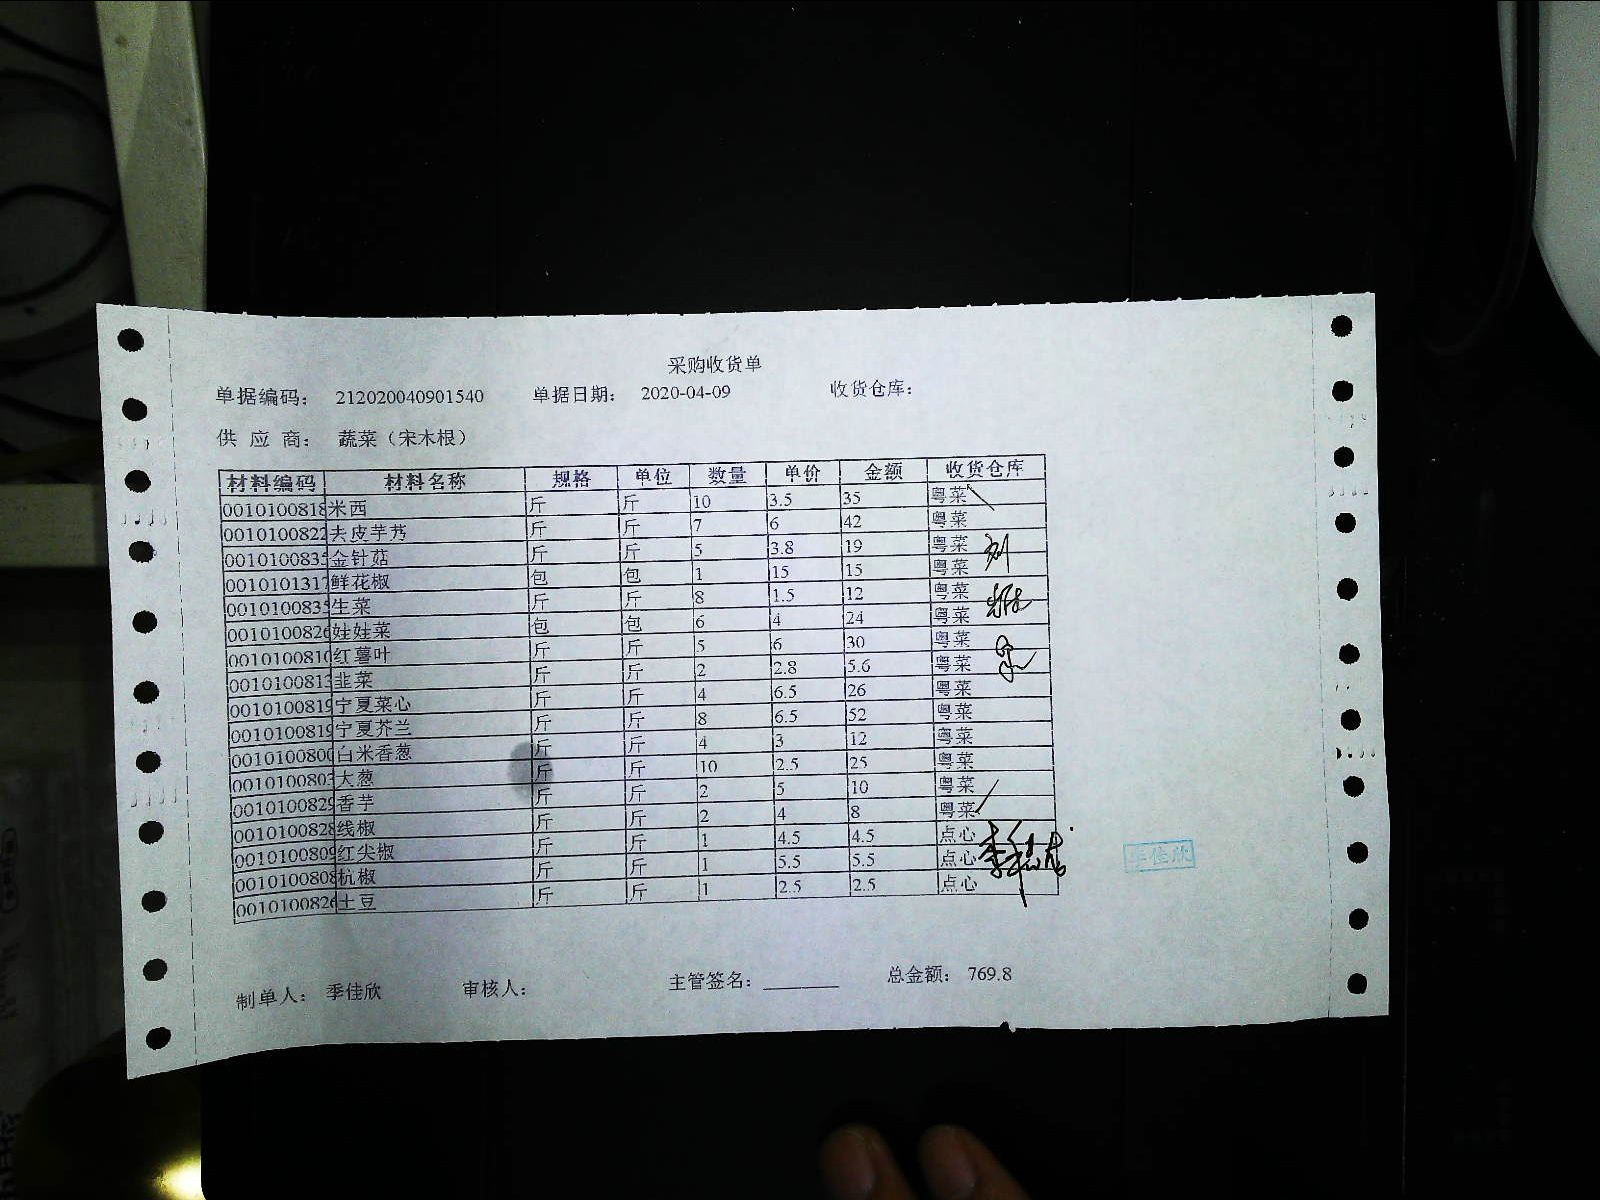 采购收货单
单据编码： 212020040901540 单据日期： 2020-04-09 收货仓库：
供 应 商： 蔬菜（宋木根）
材料编码 材料名称 规格 单位 数量 单价 金额 收货仓库
0010100818 米西 斤 斤 10 3.5 35 粤菜
0010100822 去皮芋艿 斤 斤 7 6 42 粤菜
001010083 金针菇 斤 斤 5 3.8 19 粤菜
0010101317 鲜花椒 包 包 1 15 15 粤菜
001010083 生菜 斤 斤 8 1.5 12 粤菜
0010100826 娃娃菜 包 包 6 4 24 粤菜
0010100810 红薯叶 斤 斤 5 6 30 粤菜
0010100813 韭菜 斤 斤 2 2.8 5.6 粤菜
0010100819 宁夏菜心 斤 斤 4 6.5 26 粤菜
0010100819 宁夏芥兰 斤 斤 8 6.5 52 粤菜
0010100800 白米香葱 斤 斤 4 3 12 粤菜
0010100803 大葱 斤 斤 10 2.5 25 粤菜
0010100829 香芋 斤 斤 2 5 10 粤菜
0010100828 线椒 斤 斤 2 4 8 粤菜
0010100809 红尖椒 斤 斤 1 4.5 4.5 点心
0010100808 杭椒 斤 斤 1 5.5 5.5 点心
0010100826 土豆 斤 斤 1 2.5 2.5 点心
季佳欣
制单人： 季佳欣 审核人： 主管签名： 总金额： 769.8